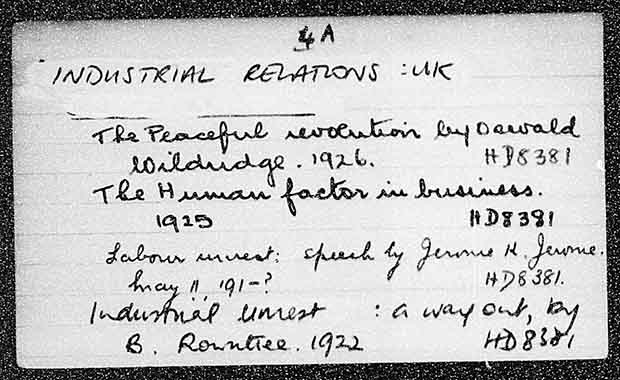 4A
INDUSTRIAL RELATIONS : UK
The Peaceful revolution by Oswald
Wildridge. 1926. HD8381
The Human factor in business.
1925 HD8381
Labour unrest: speech by Jerome K. Jerome.
May 11, 191-? HD8381.
Industrial Unrest : a way out, by
B. Rowntree. 1922 HD8381